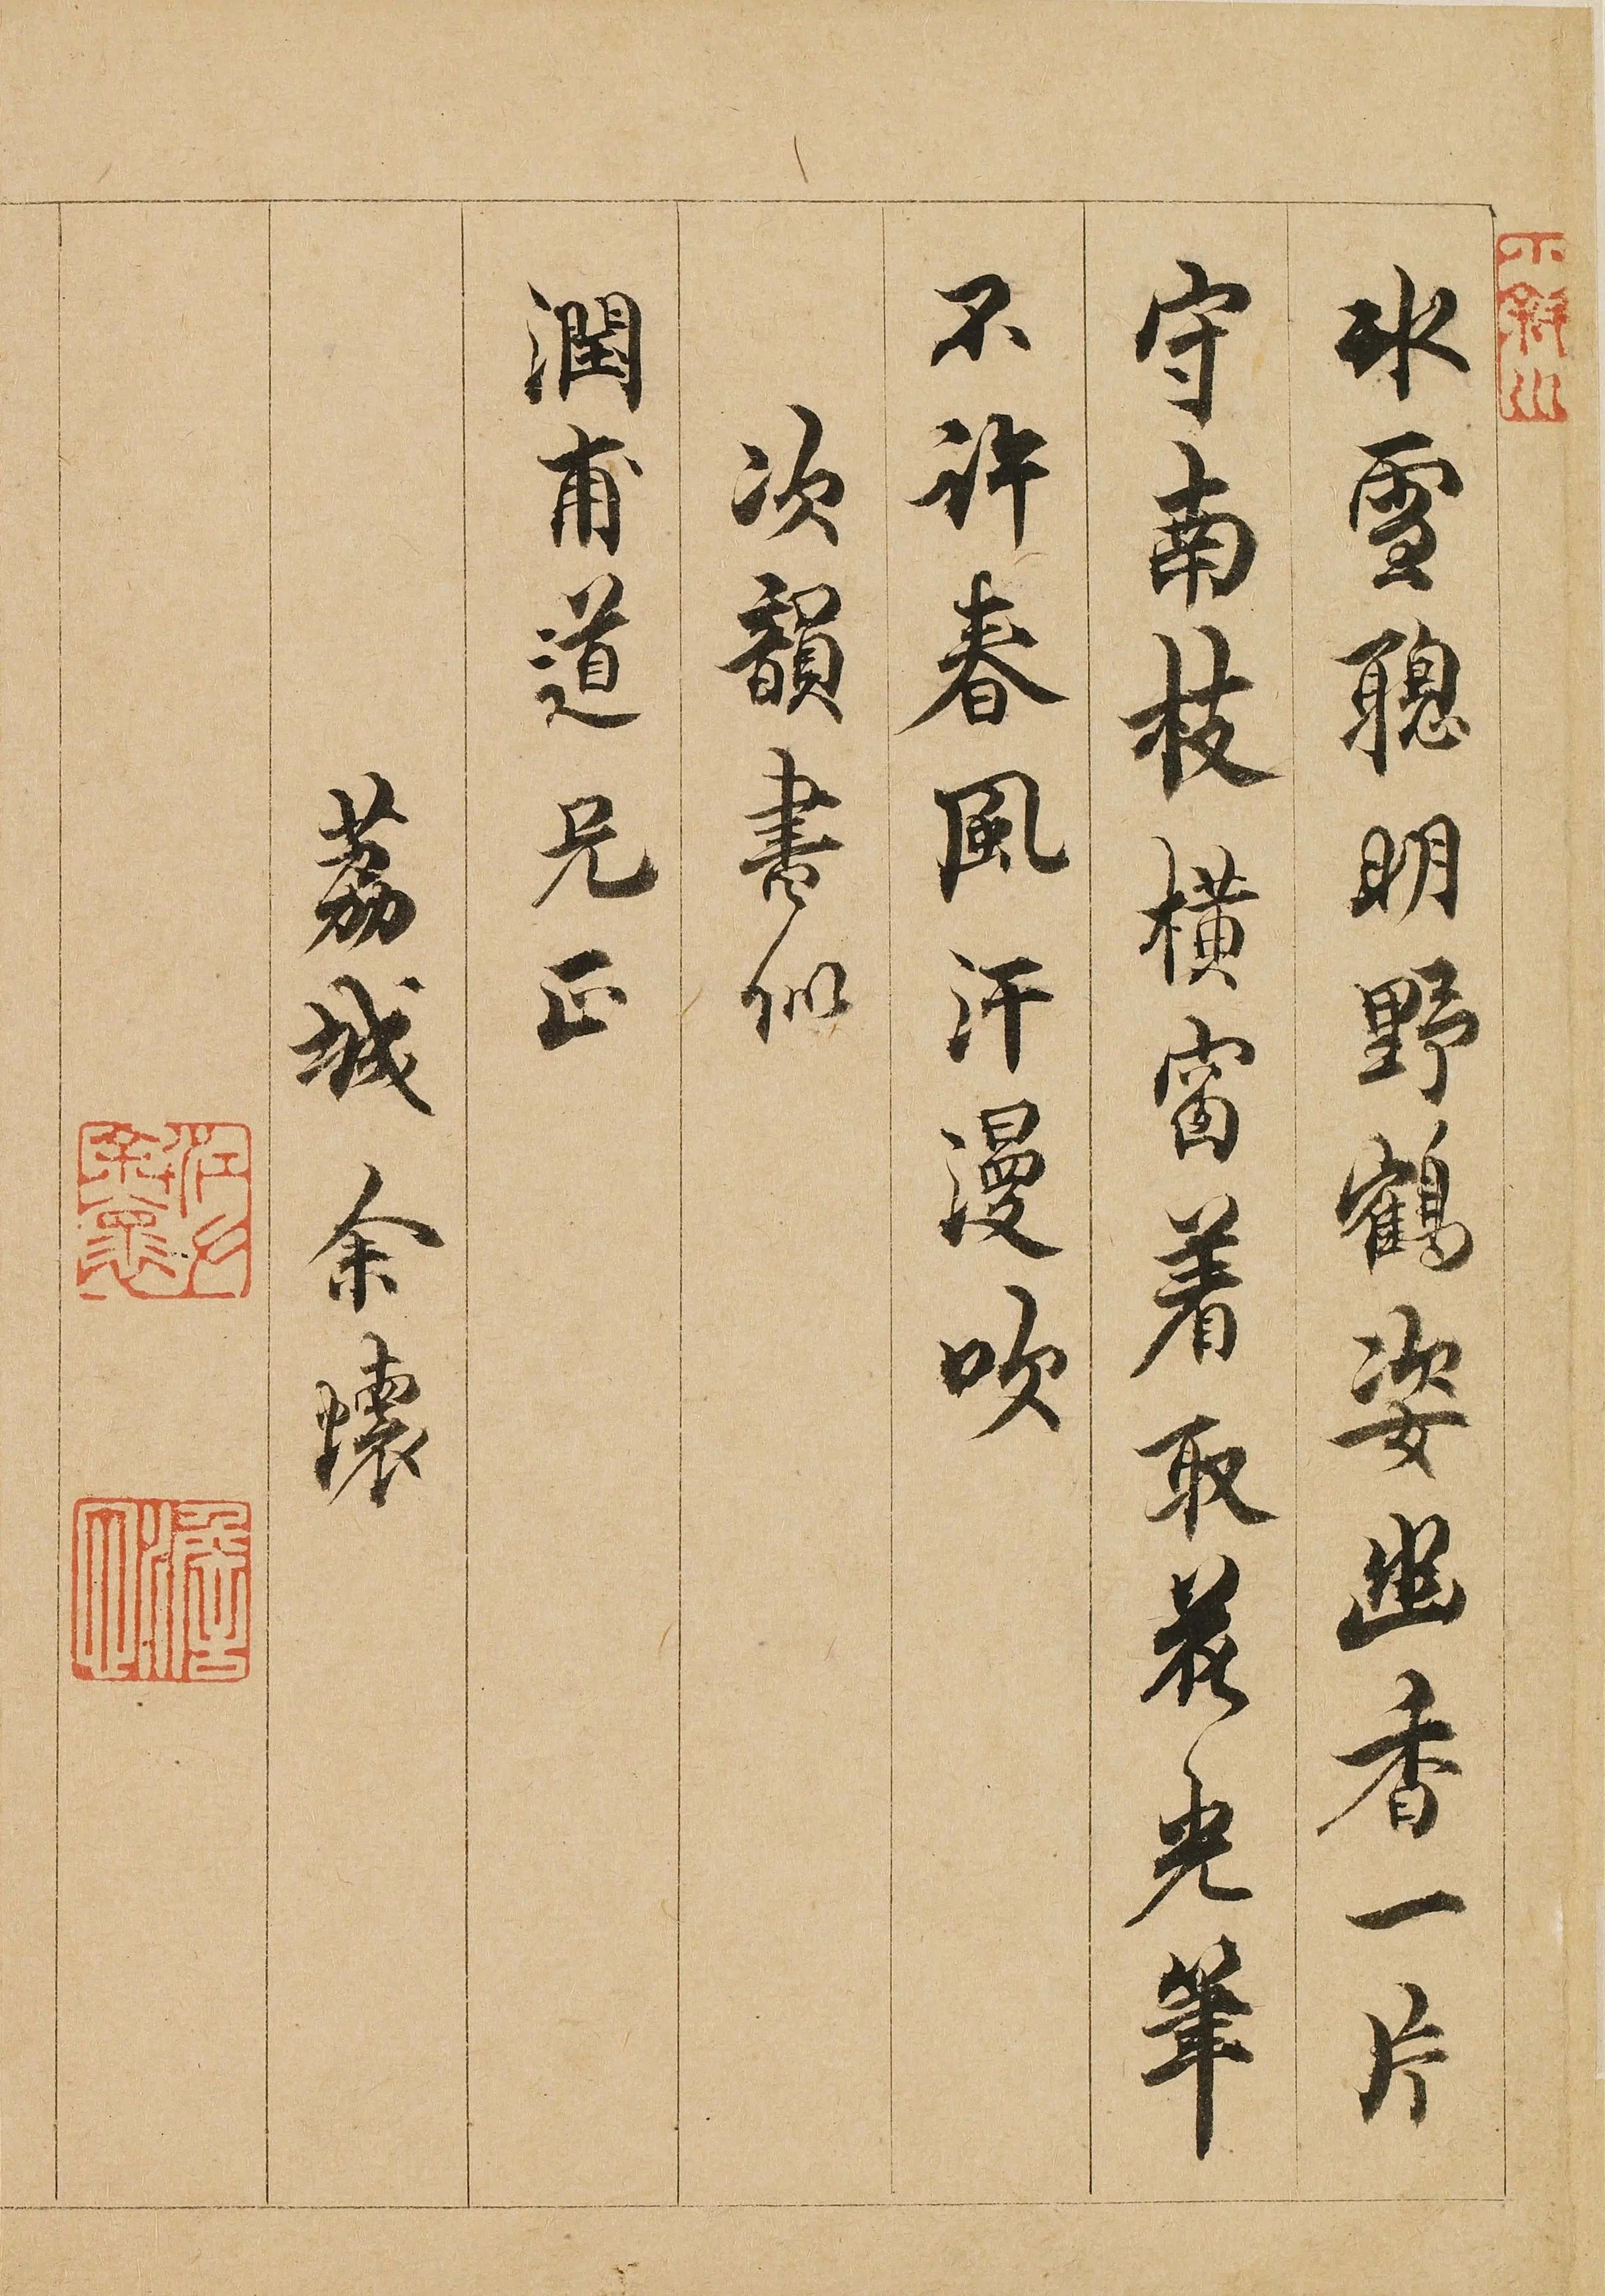 冰雪聰明野鶴姿幽香一片
守南枝橫窗着取花光筆
不許春風汗漫吹
次韻書似
潤甫道兄正
荔城余懷